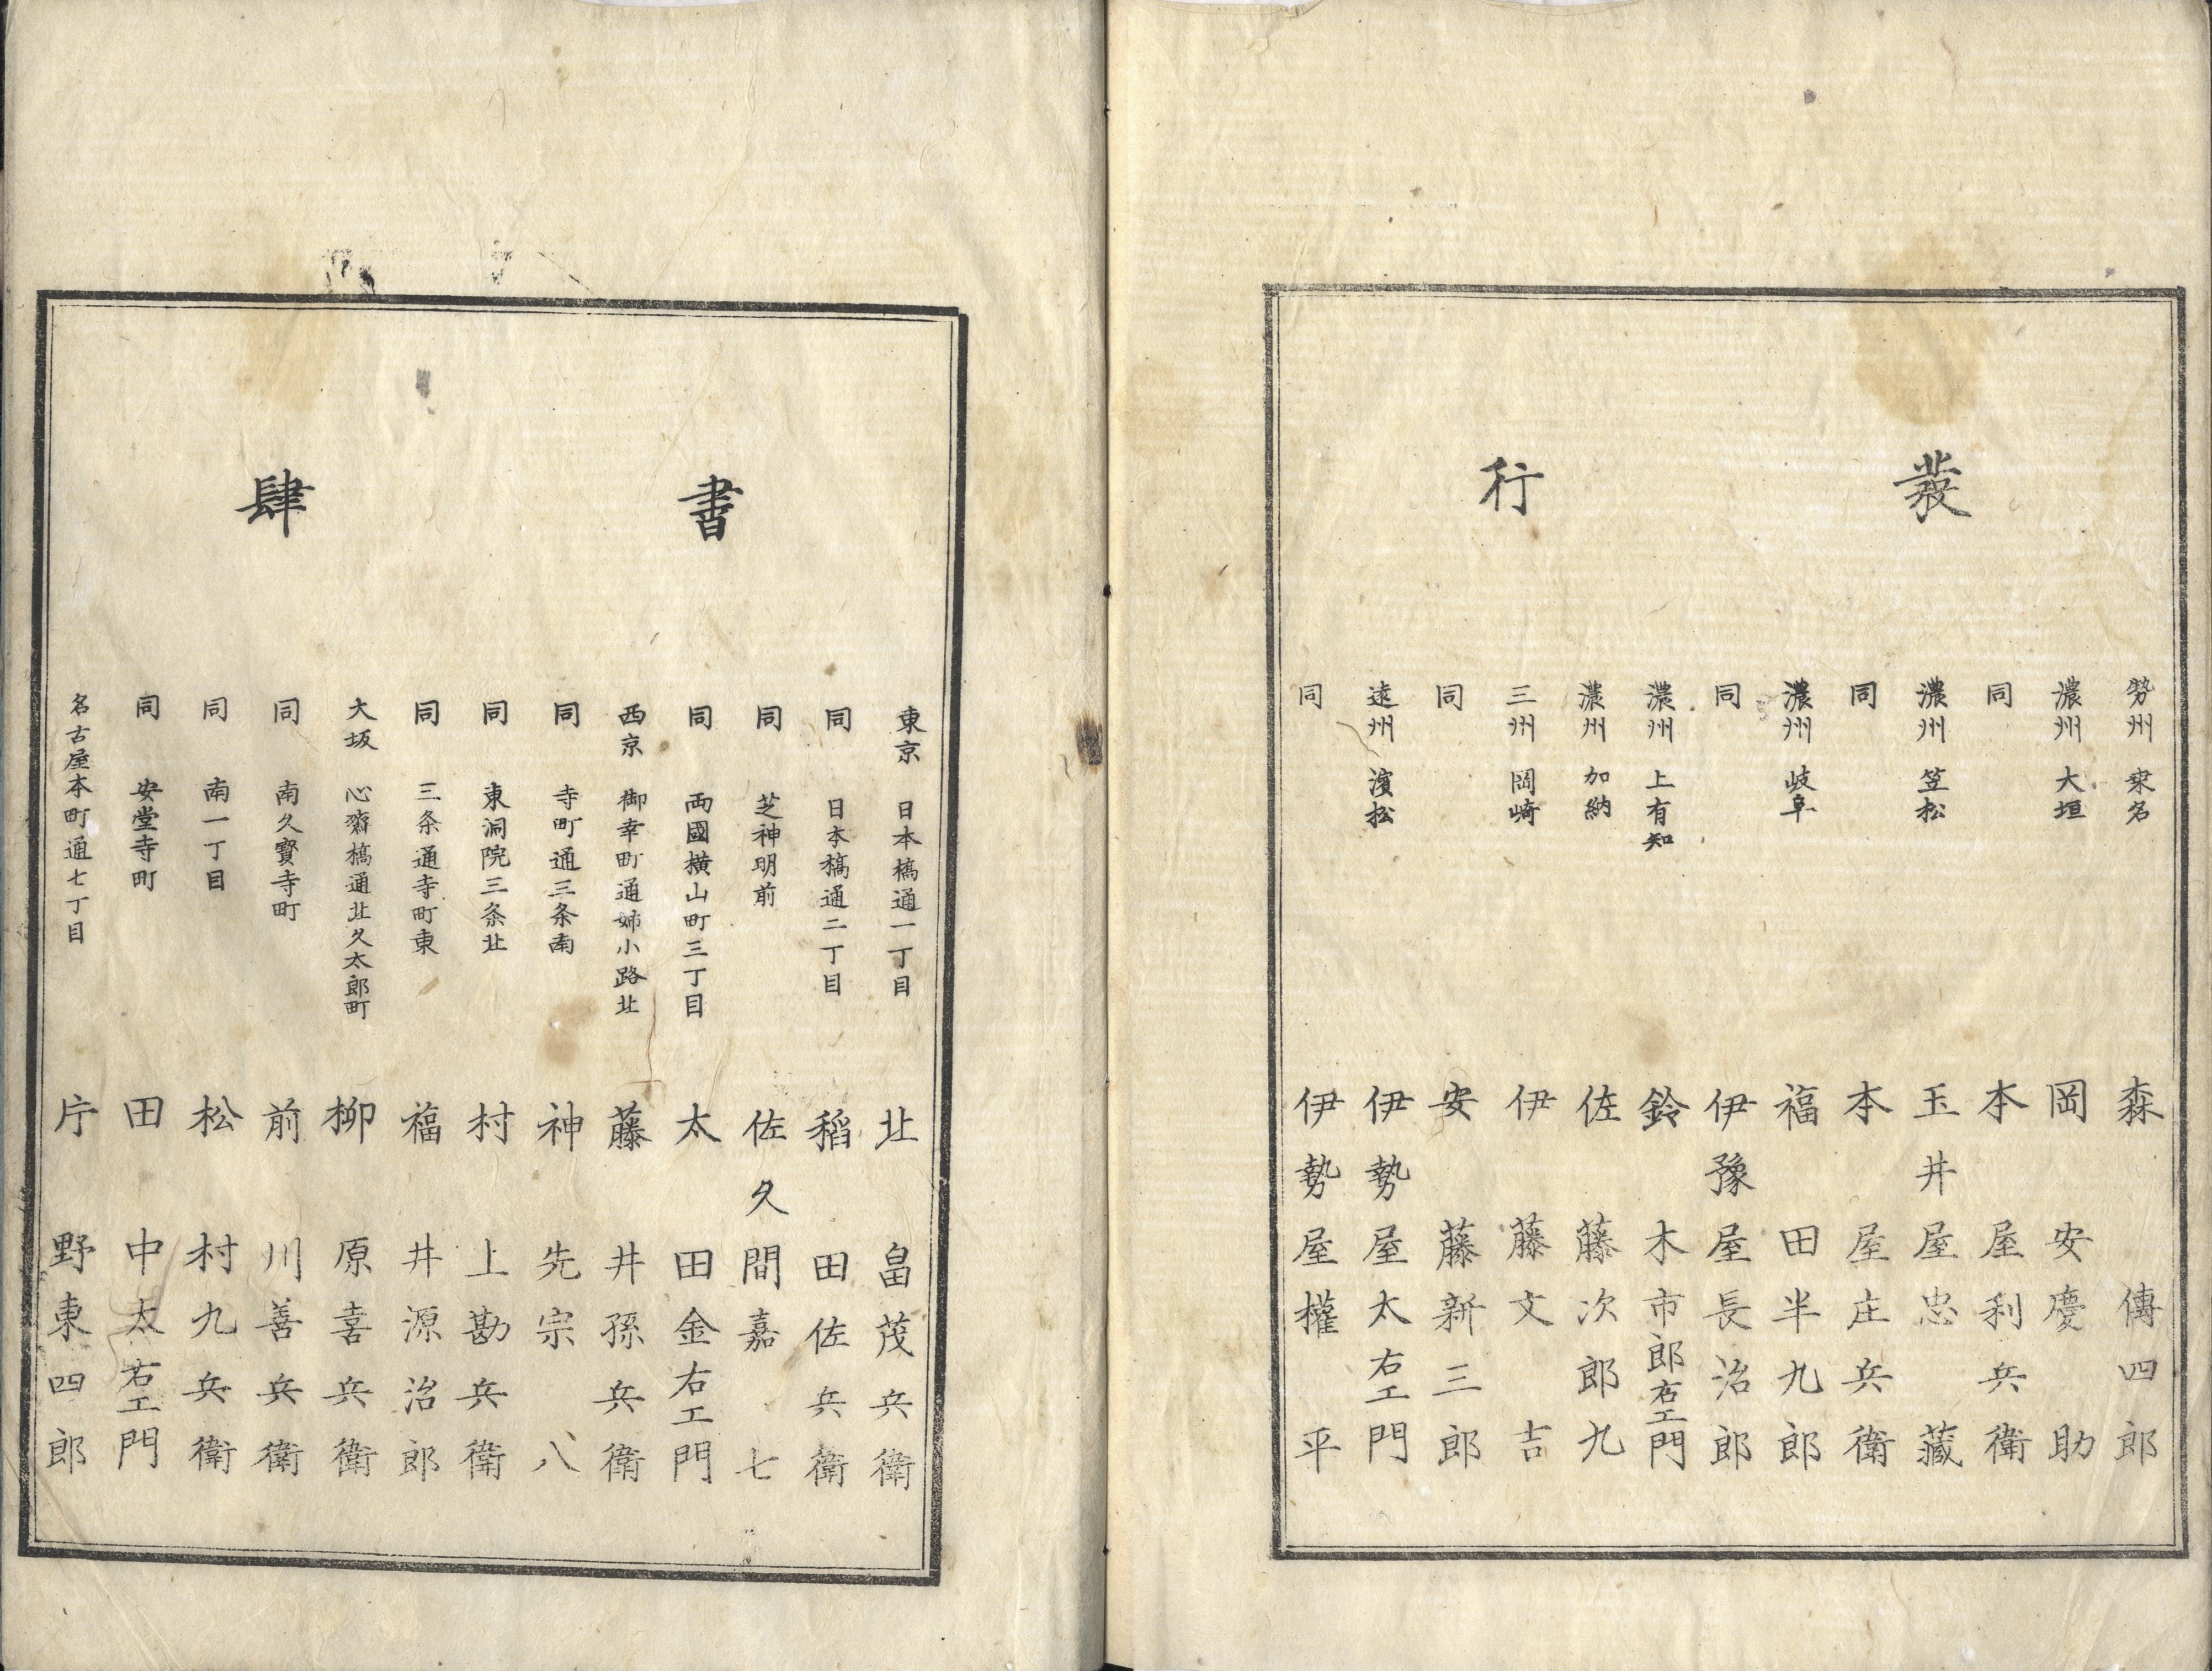 發行
勢州 桒名 森傳四郎
濃州 大垣 岡安慶助
同 本屋利兵衛
濃州 笠松 玉井屋忠藏
同 本屋庄兵衛
濃州 岐阜 福田半九郎
同 伊豫屋長治郎
濃州 上有知 鈴木市郎右エ門
濃州 加納 佐藤次郎九
三州 岡崎 伊藤文吉
同 安藤新三郎
遠州 濱松 伊勢屋太右エ門
同 伊勢屋權平
書肆
東京 日本橋通一丁目 北畠茂兵衛
同 日本橋通二丁目 稻田佐兵衛
同 芝神明前 佐久間嘉七
同 両國横山町三丁目 太田金右エ門
西京 御幸町通姉小路北 藤井孫兵衛
同 寺町通三条南 神先宗八
同 東洞院三条北 村上勘兵衛
同 三条通寺町東 福井源治郎
大坂 心齋橋通北久太郎町 柳原喜兵衛
同 南久寳寺町 前川善兵衛
同 南一丁目 松村九兵衛
同 安堂寺町 田中太右エ門
名古屋本町通七丁目 片野東四郎